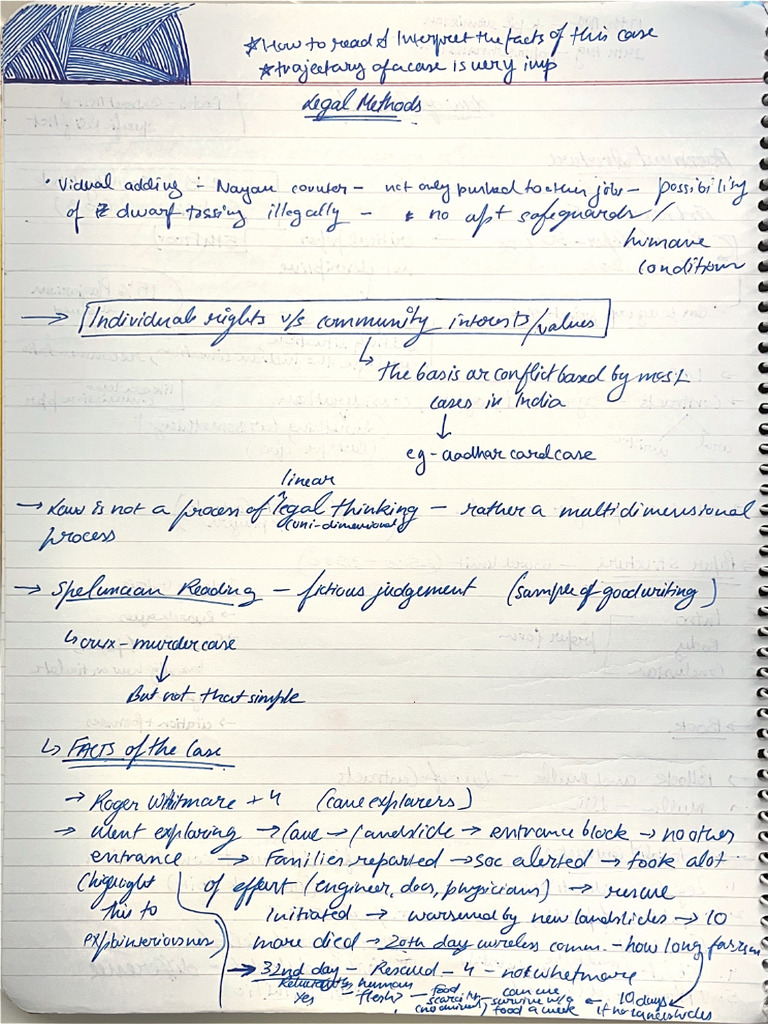 *How to read & Interpret the facts of this case
*trajectory of a case is very imp
Legal Methods
• Vidual adding :- Nayan counter - not only pushed to other jobs - possibility
of dwarf tossing illegally - no apt safeguards/
humane
condition
→ Individual rights v/s community interests/values
↳ the basis or conflict based by most
cases in India
↓
eg - aadhar card case
linear
→ Law is not a process of legal thinking - rather a multidimensional
(uni-dimensional)
process
→ Speluncean Reading - fictious judgement (sample of good writing)
↳ crux - murder case
↓
But not that simple
↳ FACTS of the Case
→ Roger Whitmore + 4 (cave explorers)
→ Went exploring → Cave → Landslide → entrance block → no other
entrance → Families reported → soc alerted → took alot
(highlight of effort (engineer, docs, physicians) → rescue
this to initiated → worsened by new landslides → 10
explain seriousness) more died → 20th day wireless comm. - how long for
→ 32nd day - Rescued - 4 - not whetmore
human food can we 10 days
Yes flesh? scarcity survive w/o ← if no landslides
(no animals) food a week